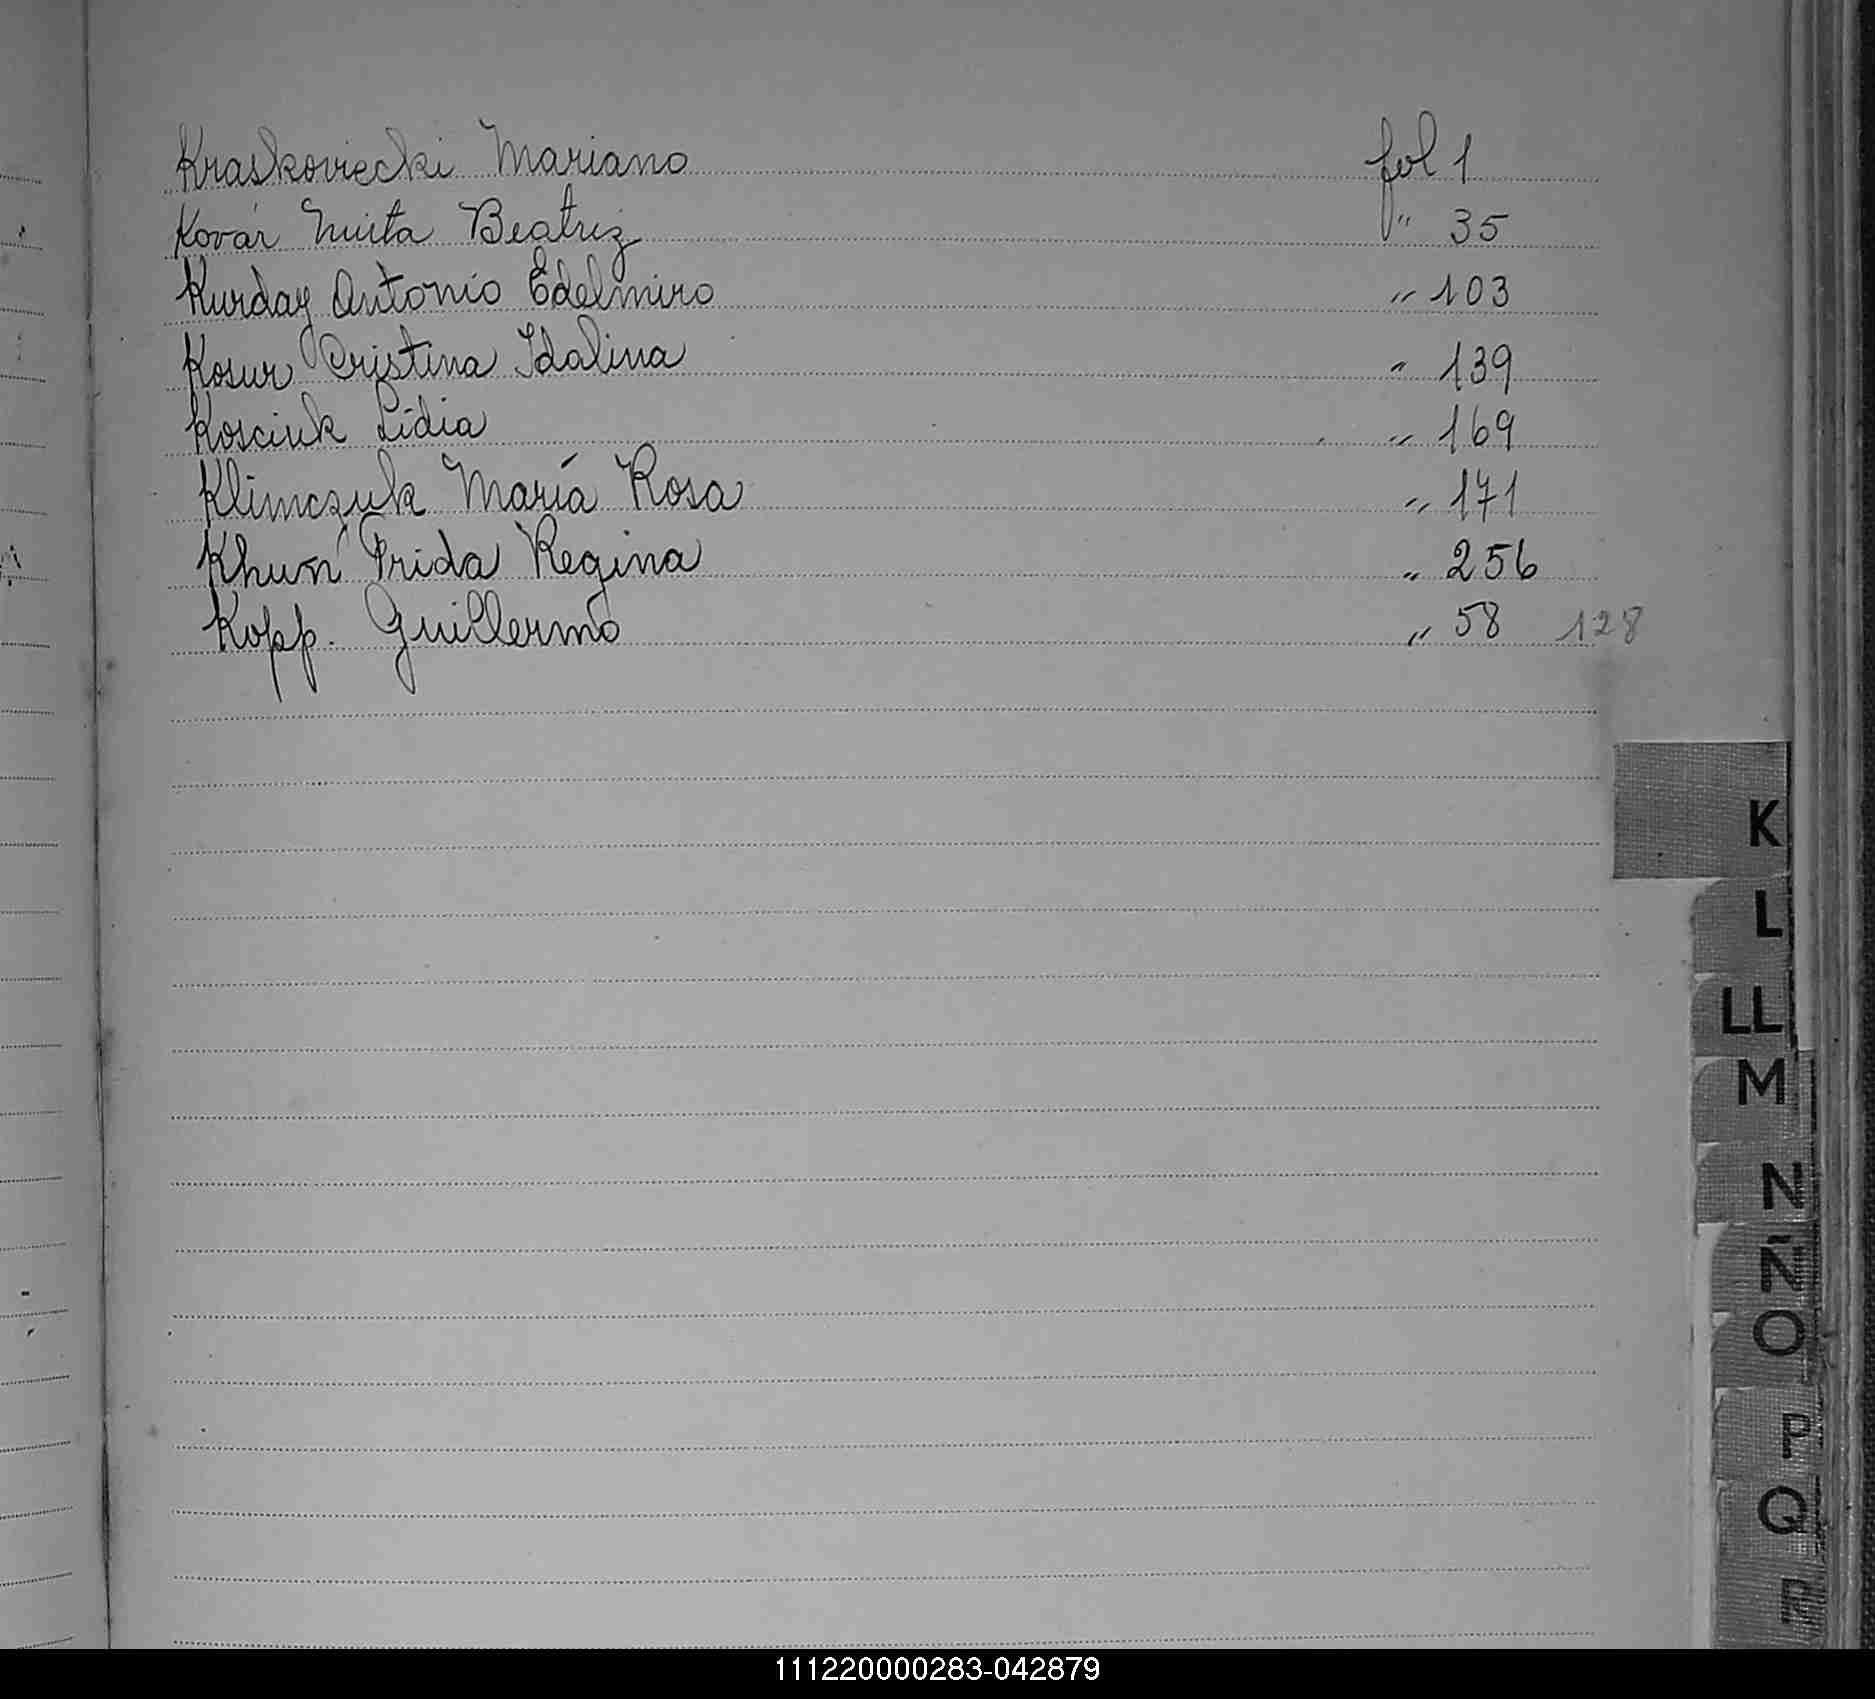 Kraskoviecki Mariano fol 1
Kovár Beatriz " 35
Kurday Antonio Edelmiro " 103
Kosur Cristina Idalina " 139
Kosciuk Lidia " 169
Klimczuk María Rosa " 171
Khun Frida Regina " 256
Kopp. Guillermo " 58 128
K
L
LL
M
N
Ñ
O
P
Q
R
111220000283-042879